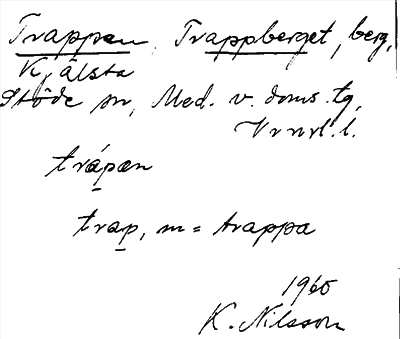 Trappen, Trappberget, berg,
Kjälsta
Stöde sn, Med. v. doms. tg,
Vrnrl. l.
trápæn
trap, m = trappa
1960
K. Nilsson